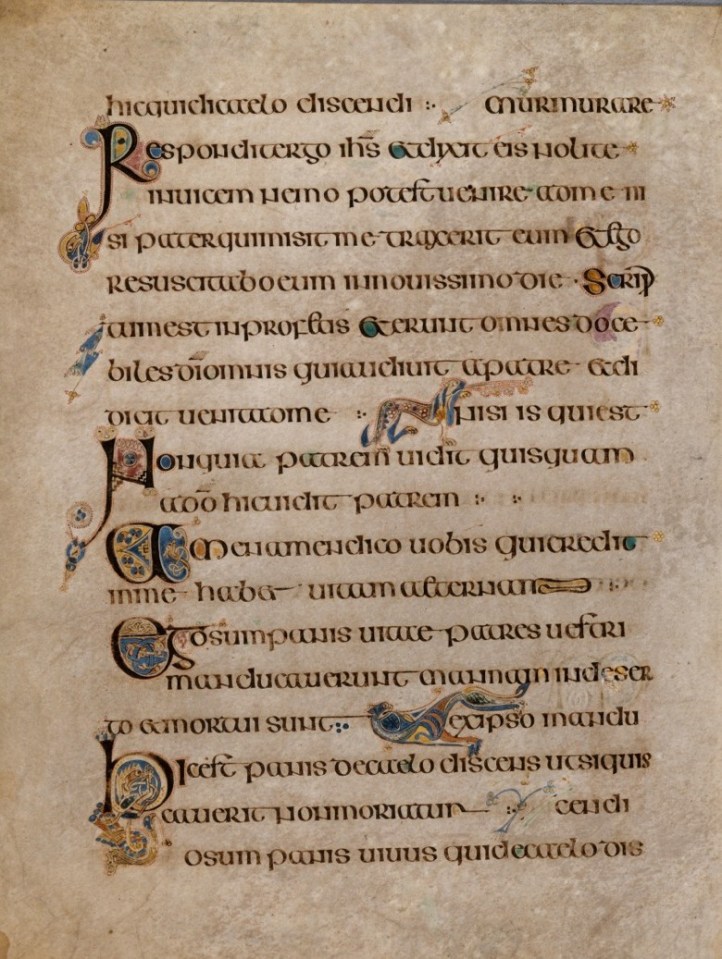 hic quidicaelo discendi murmurare
Respondit ergo ihs et dixit eis nolite
inuicem nemo potest uenire adme ni
si pater qui misit me traxerit eum et ego
resuscitabo eum in nouissimo die Scrip
tum est in profetis et erunt omnes doce
biles di omnis qui audiuit a patre et di
dicit uenit adme nisi is qui est
Non quia patrem uidit quisquam
ado hic uidit patrem
Amen amen dico uobis qui credit
inme habet uitam aeternam
Ego sum panis uitae patres uestri
manducauerunt manna in deser
to et mortui sunt ex ipso mandu
hic est panis de caelo discens ut siquis
cauerit non moriatur cendi
osum panis uiuus qui de caelo dis